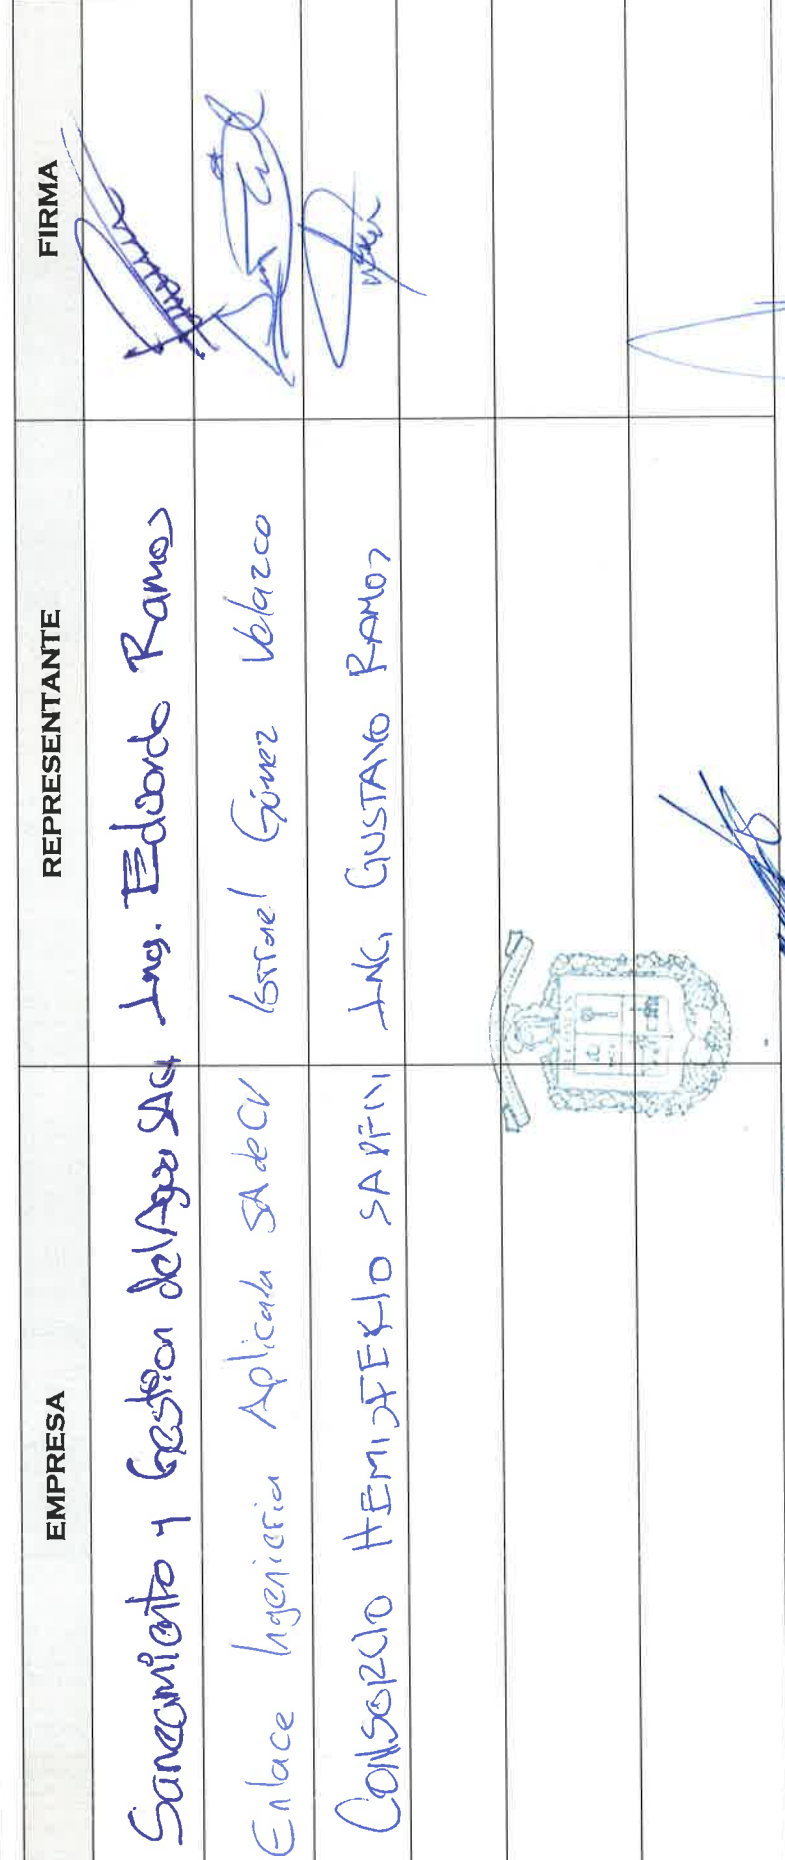 EMPRESA REPRESENTANTE FIRMA
Saneamiento y Gestion del Agua SACV Ing. Eduardo Ramos
Enlace Ingenieria Aplicada SA de CV Israel Gómez Velazco
CONSORCIO HEMISFERIO SAPI CV ING. GUSTAVO RAMOS